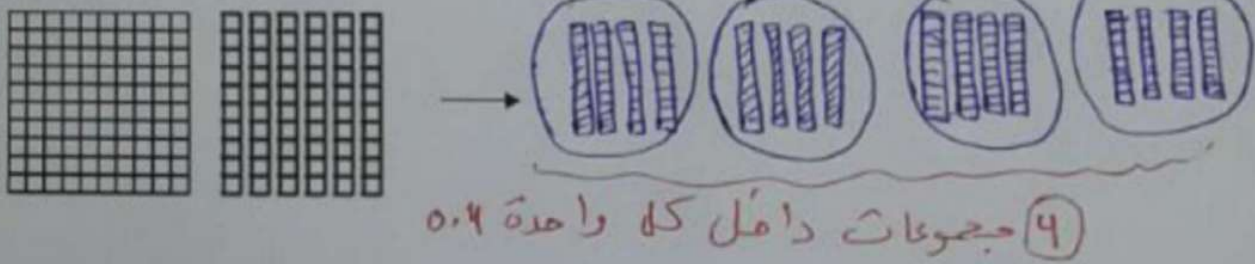 4 مجموعات داخل كل واحدة 0.4